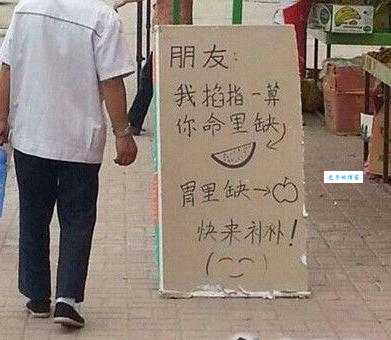 朋友:
我掐指一算
你命里缺
胃里缺→
快来补补!